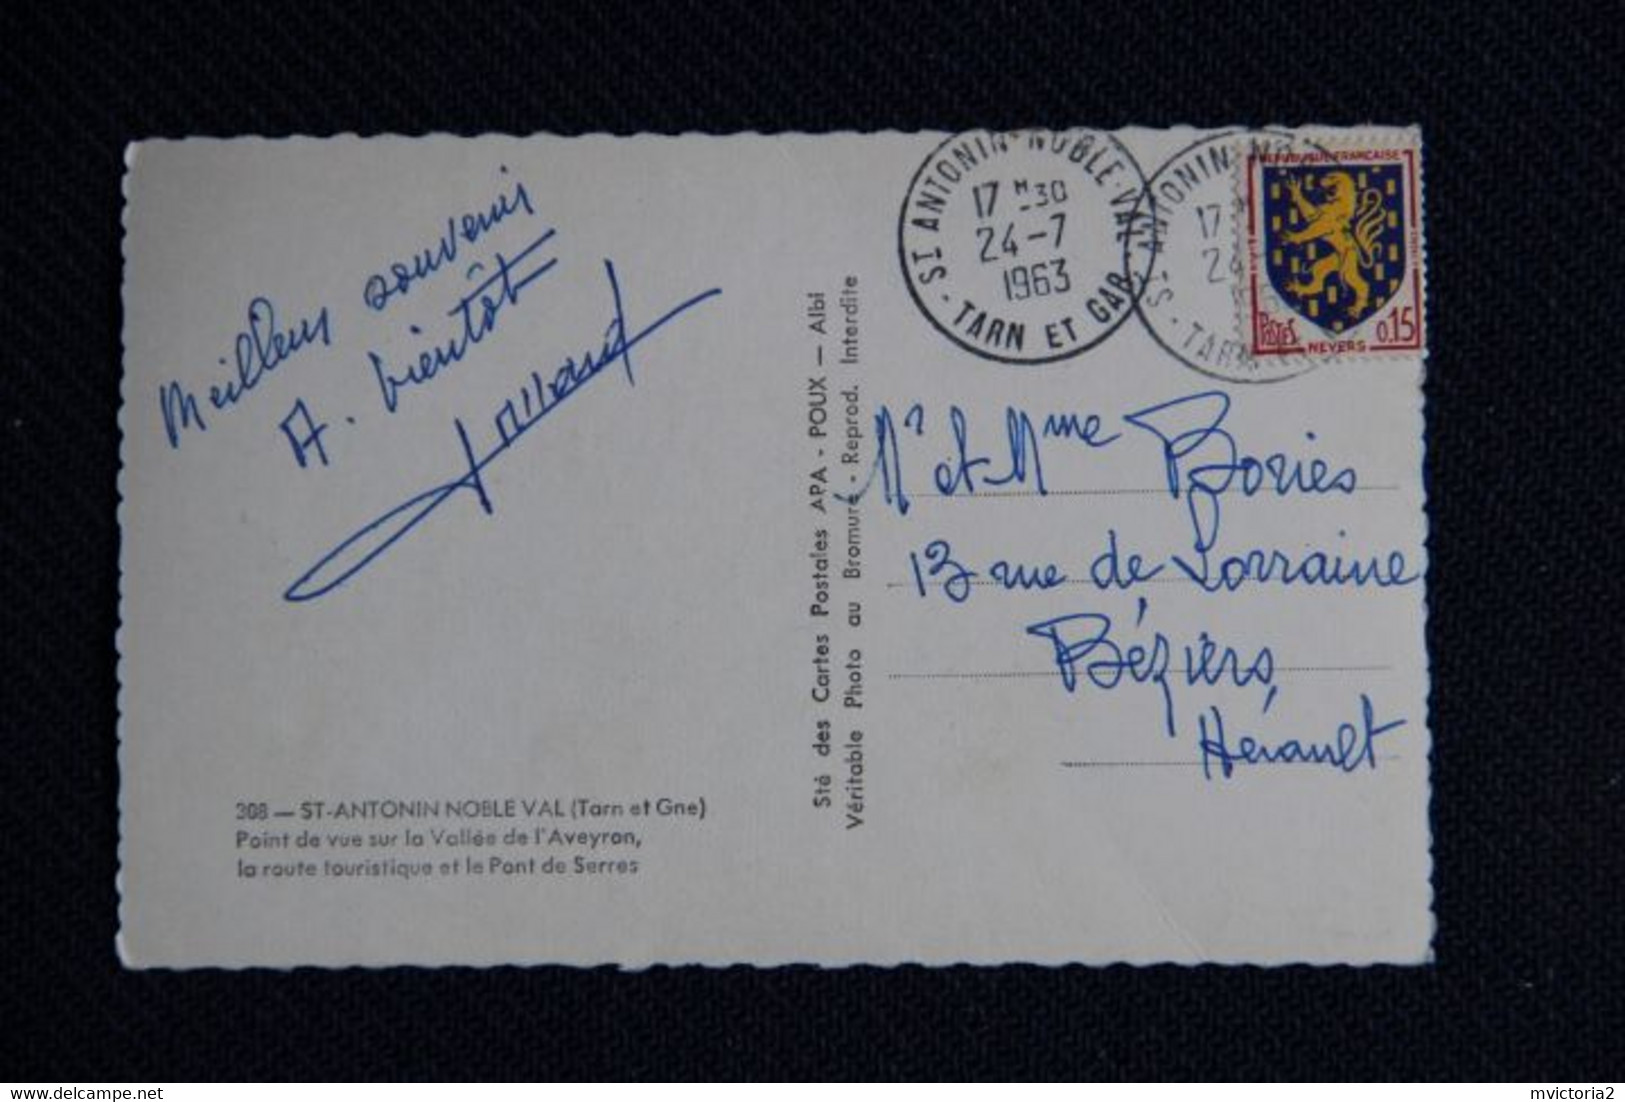 Meilleurs souvenirs
A. bientôt
308 — ST-ANTONIN NOBLE VAL (Tarn et Gne)
Point de vue sur la Vallée de l'Aveyron,
la route touristique et le Pont de Serres
Sté des Cartes Postales APA - POUX — Albi
Véritable Photo au Bromure - Reprod. Interdite
ST ANTONIN-NOBLE-VAL
17 H -30
24-7
1963
S - TARN ET GAR.
ANTONIN-NO
17
24
S - TARN
REPUBLIQUE FRANCAISE
POSTES
NEVERS
0.15
Mr et Mme Bories
13 rue de Lorraine
Béziers,
Hérault
mvictoria2